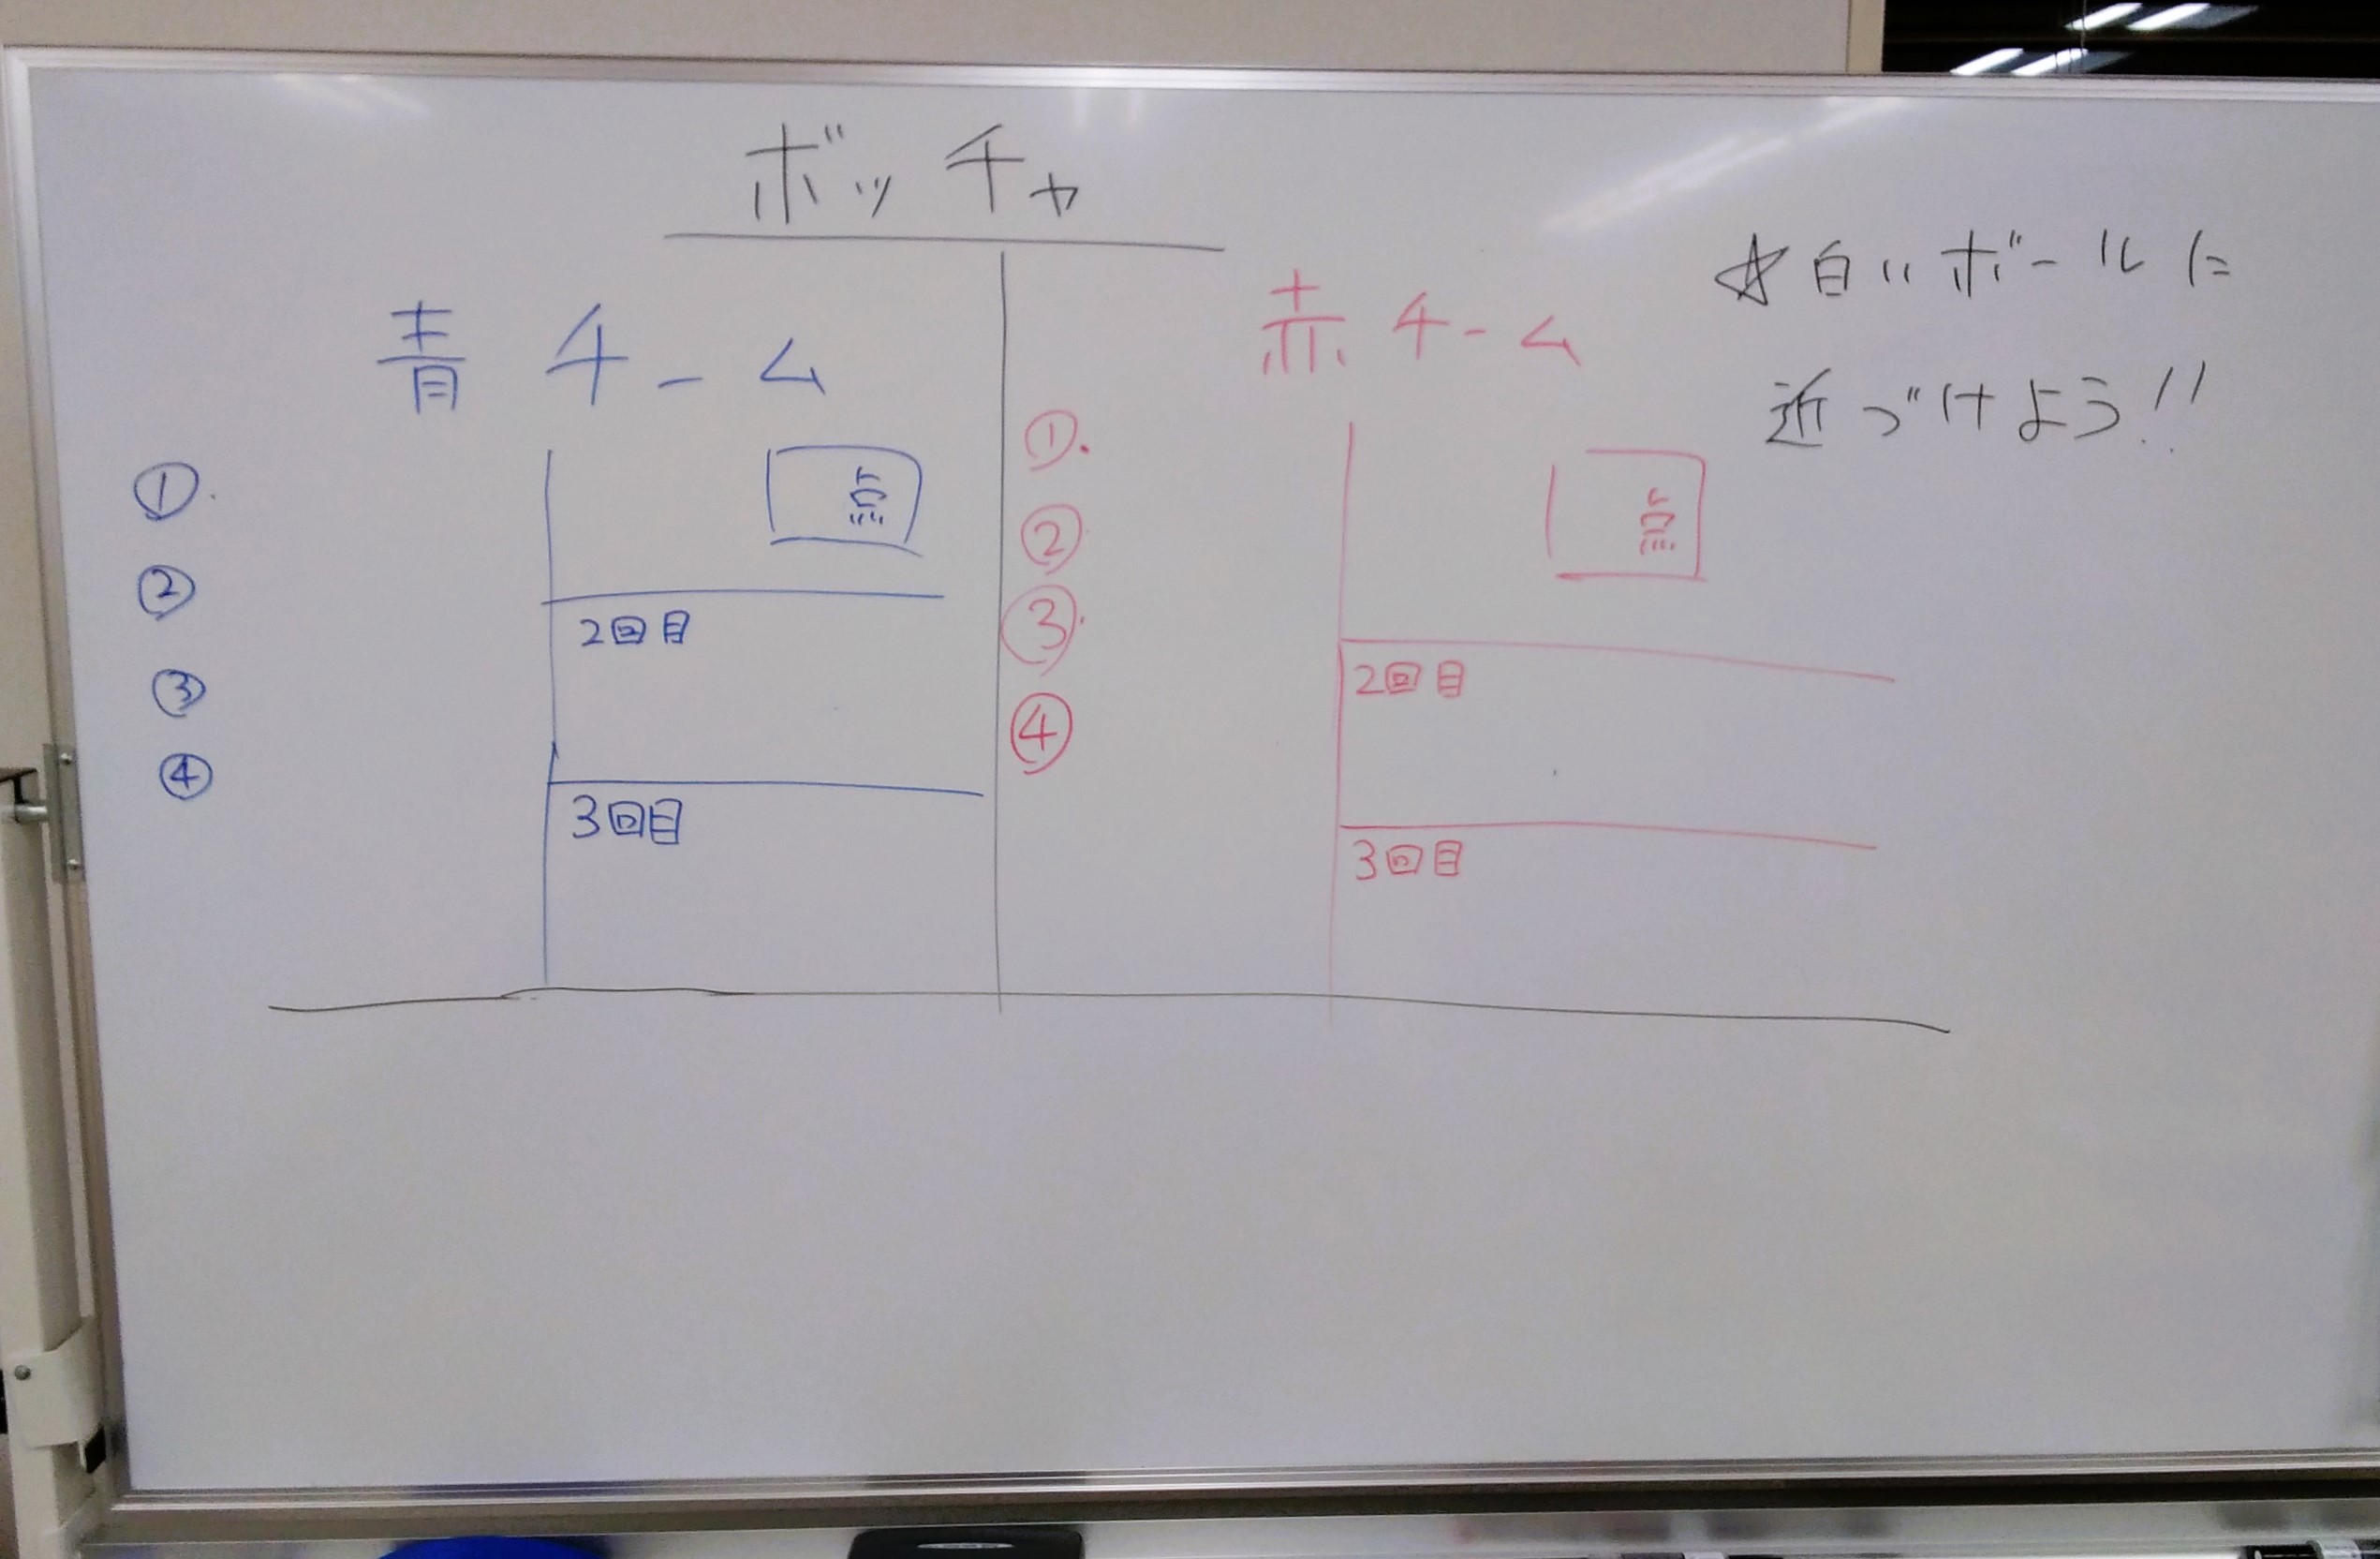 ボッチャ
☆白いボールに
近づけよう!!
青チーム
①.
②
③
④
点
2回目
3回目
赤チーム
①.
②
③.
④
点
2回目
3回目